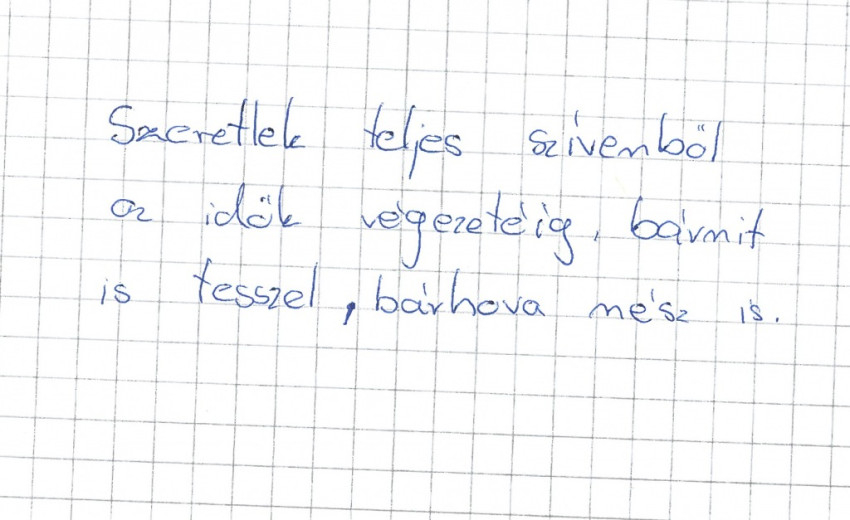 Szeretlek teljes szívemből
az idők végezetéig, bármit
is teszel, bárhova mész is.